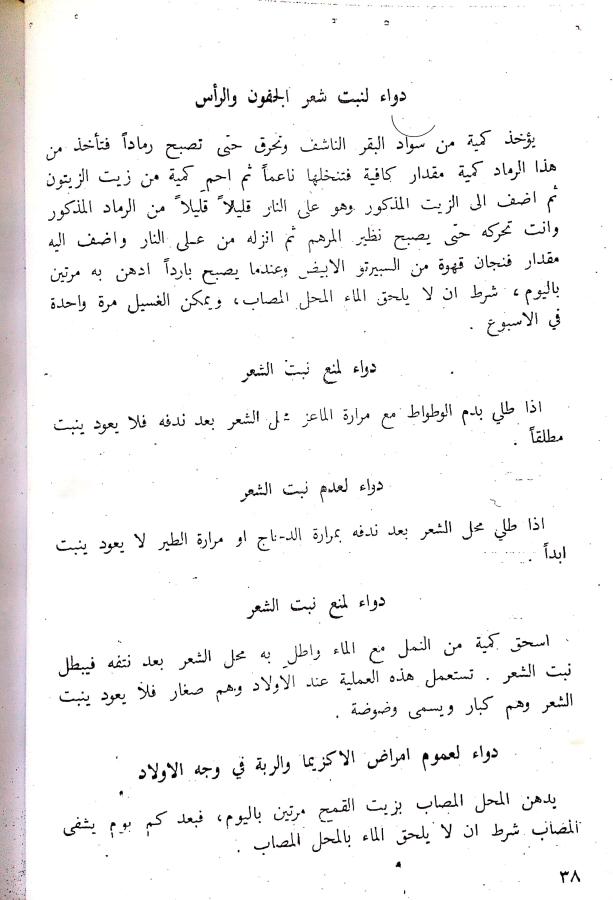 دواء لنبت شعر الجفون والرأس
يؤخذ كمية من سواد البقر الناشف وتحرق حتى تصبح رماداً فتأخذ من
هذا الرماد كمية مقدار كافية فتنخلها ناعماً ثم احم كمية من زيت الزيتون
ثم اضف الى الزيت المذكور وهو على النار قليلاً قليلاً من الرماد المذكور
وانت تحركه حتى يصبح نظير المرهم ثم انزله من على النار واضف اليه
مقدار فنجان قهوة من السبيرتو الابيض وعندما يصبح بارداً ادهن به مرتين
باليوم، شرط ان لا يلحق الماء المحل المصاب، ويمكن الغسيل مرة واحدة
في الاسبوع .
دواء لمنع نبت الشعر
اذا طلي بدم الوطواط مع مرارة الماعز محل الشعر بعد ندفه فلا يعود ينبت
مطلقاً .
دواء لعدم نبت الشعر
اذا طلي محل الشعر بعد ندفه بمرارة الدجاج او مرارة الطير لا يعود ينبت
ابداً .
دواء لمنع نبت الشعر
اسحق كمية من النمل مع الماء واطل به محل الشعر بعد نتفه فيبطل
نبت الشعر . تستعمل هذه العملية عند الأولاد وهم صغار فلا يعود ينبت
الشعر وهم كبار ويسمى وضوضة .
دواء لعموم امراض الاكزيما والربة في وجه الاولاد
يدهن المحل المصاب بزيت القمح مرتين باليوم، فبعد كم يوم يشفى
المصاب شرط ان لا يلحق الماء بالمحل المصاب .
٣٨